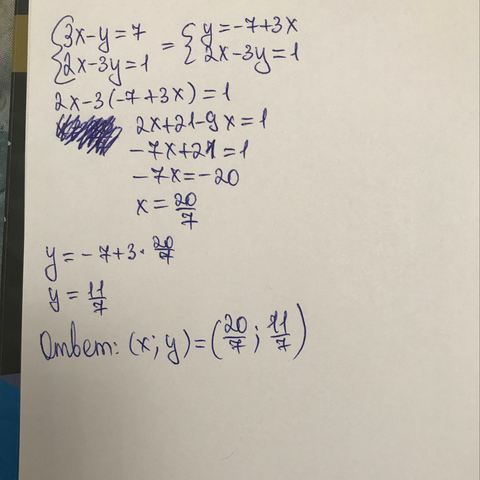 {3x-y=7 = {y=-7+3x
{2x-3y=1 {2x-3y=1
2x-3(-7+3x)=1
2x+21-9x=1
-7x+21=1
-7x=-20
x=20/7
y=-7+3·20/7
y=11/7
Ответ: (x; y)=(20/7; 11/7)